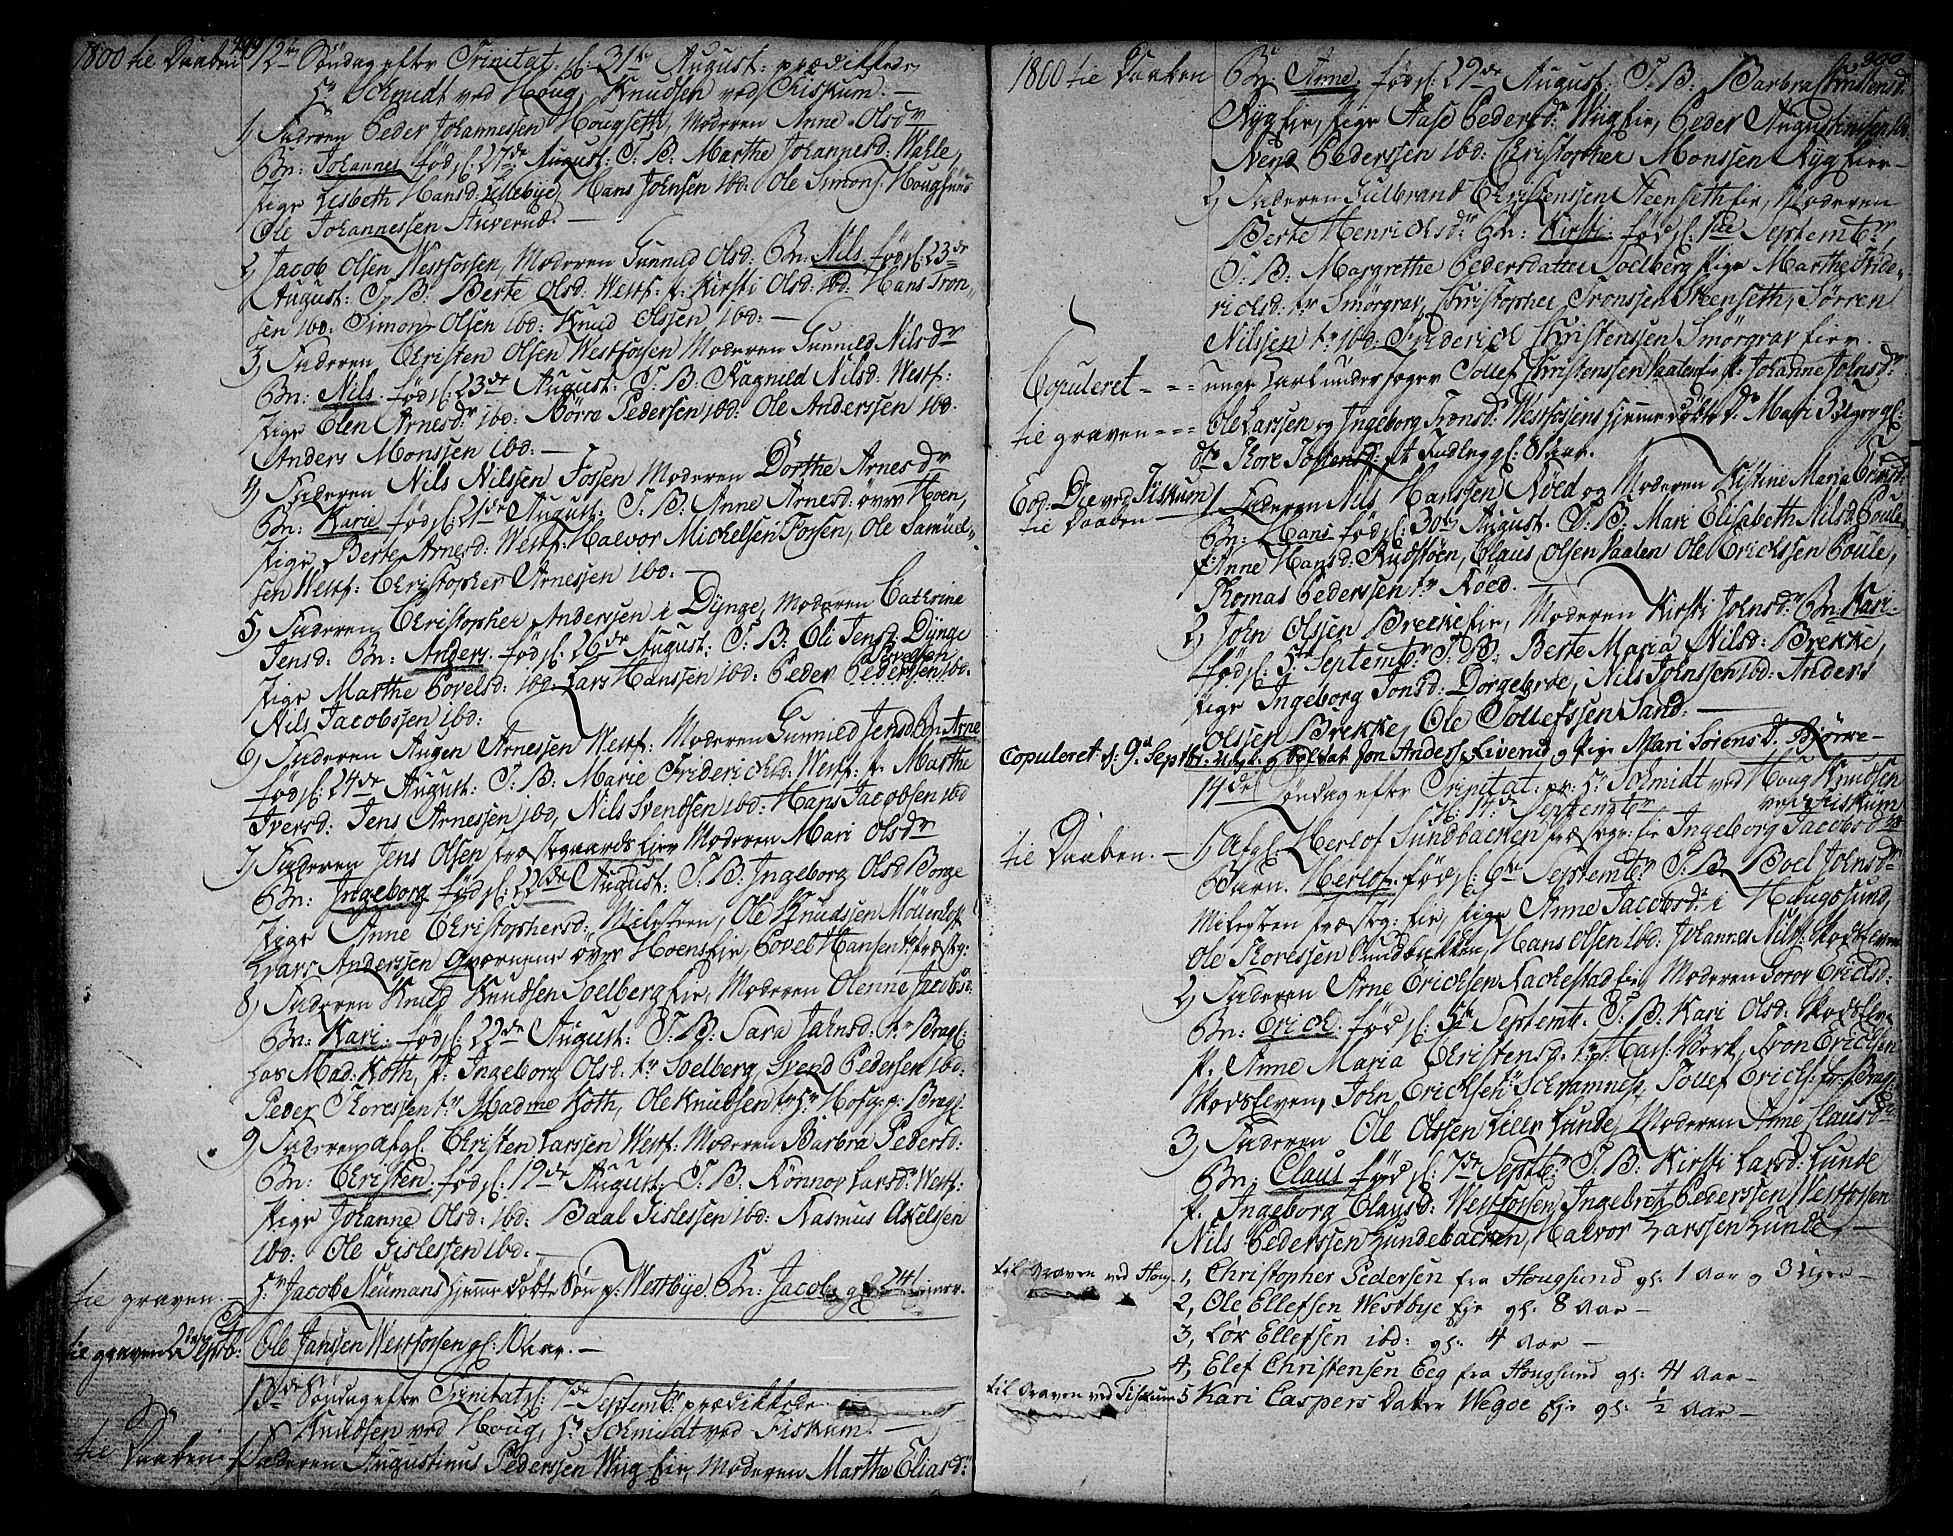 1800 til Daaben 12te Søndag efter Trinitat: d: 31te August: prædikkede
Hr Schmidt ved Houg, Knudsen ved Fiskum. —
1, Faderen Peder Johannessen Hougseth, Moderen Anne Olsdr
Bn: Johannes fød d: 27de August: T. B. Marthe Johannesd: Walle,
Pige Lisbeth Hansd: Lillebye, Hans Johnsen ibd: Ole Simons: Hougsund
Ole Johannessen Anverud. —
2, Jacob Olsen Westfossen, Moderen Gunnild Olsd: Bn: Nils fød d: 23de
August: T. B: Berte Olsd: Westf: p: Kirsti Olsd: ibd: Hans Tron-
sen ibd: Simon Olsen ibd: Knud Olssen ibd: —
3, Faderen Christen Olsen Westfossen Moderen Gunnild Nilsdr
Bn: Nils fød d: 23de August: T. B: Ragnild Nilsd: Westf:
Pige Elen Arnesdr ibd: Børre Pedersen ibd: Ole Anderssen ibd.
Anders Monssen ibd: —
4, Faderen Nils Nilssen Fossen Moderen Dorthe Arnesdr
Bn: Karie fød d: 21de August: T. B: Anne Arnesd: øvre Hoen,
Pige Berte Arnesd: Westf: Halvor Mickelsen Fossen, Ole Samuel-
sen Westf: Christopher Arnessen ibd: —
5, Faderen Christopher Andersen i Dynge, Moderen Cathrine
Jensd: Bn: Anders. fød d: 26de August: T. B. Eli Jensd: Dynge
Povelsen
Pige Marthe Povelsd: ibd. Lars Hanssen ibd: Peder Pederssen ibd:
Nils Jacobssen ibd:
6, Faderen Augen Arnessen Westf: Moderen Gunnild Jensd: Bn: Arne
fød d: 24de August: T. B: Marie Friderichsd: Westf: p: Marthe
Iversd: Jens Arnessen ibd, Nils Svendsen ibd: Hans Jacobsen ibd
7, Faderen Jens Olsen Præstegaards Eier Moderen Mari Olsdr
Bn: Ingeborg fød d: 22de August: T. B: Ingeborg Olsd: Borge
Pige Anne Christophersd: Milesteen, Ole Knudssen Møllenhof
Lars Anderssen øvre Hoens Eie, Povel Hansen Præstg:
8, Faderen Knud Knudsen Soelberg Eie, Moderen Olenne Jacobsd:
Bn: Kari. fød d: 22de August: T. B: Sara Jahnsd: fr Brag:
hos Mad: Koth, p: Ingeborg Olsd. fr Soelberg, Svend Pedersen ibd:
Peder Thoressen fr Madme Koth, Ole Knudsen
9, Faderen afgl. Christen Larssen Westf: Moderen Barbra Pedersd:
Bn: Christen. fød d: 19de August: T. B. Rønnov Larsd: Westf:
Pige Johanne Olsd: ibd: Baal Gislessen ibd: Rasmus Axelssen
ibd: Ole Gislessen ibd: —
til graven. — Hr Jacob Neumans hjemmedøbte Søn p: Westbye. Bn: Jacob, gl: 24
til graven d: 2den Septb: Ole Janssen Westfossen gl: 10 aar. —
13de Søndag efter Trinitat d: 7de Septemb: prædikkede
Knudsen ved Houg, Hr Schmidt ved Fiskum. —
til Daaben 1, Faderen Augustinus Pederssen Wiig Eie, Moderen Marthe Eliasdr
1800 til Daaben Bn: Anne. fød d: 29de August: T. B: Barbra Christensd:
Ryg Eie, Pige Aase Pedersd: Wiig Eie, Peder Augustinussen ibd
Svend Pederssen ibd: Christopher Monssen Ryg Eier —
2, Faderen Gulbrand Christenssen Steenseth Eie, Moderen
Berte Henricksdr Bn: Kirsti. fød d: 1de Septembr
T. B: Margrethe Pedersdatter Soelberg Pige Marthe Fride-
richsd: fr Smørgrav, Christopher Tronssen Steenseth, Sørren
Nilssen fr ibd: Friderich Christenssen Smørgrav Eier.
Copuleret - - - unge Karl undersøger Tollef Christenssen Vaalen p: Johanne Johnsdr
til graven - - - Ole Larssen og Ingeborg Tronsd: Westfossens hjemmedøbte Dr Mari 3 Uger gl:
Thore Tostensd: et Fødlegg gl: 81 aar.
Eod: Die ved Fiskum
til Daaben 1, Faderen Nils Hanssen Røed og Moderen Kistine Maria
Bn: Hans fød d: 30te August. T. B: Mari Elisabeth Nilsd: Poule,
Anne Hansd: Rudstøen, Claus Olsen Vaalen Ole Erickssen Poule,
Thomas Pederssen fr Røed. —
2, John Olssen Brekke Eie, Moderen Kirsti Johnsdr Bn: Kari.
fød d: 5te Septembr T. B: Berte Maria Nilsd: Brekke,
Pige Ingeborg Jonsd: Dorgebroe, Nils Johnssen ibd: Anders
Olssen Brekke, Ole Tollefssen Sand. —
Copuleret d: 9d Septbr: Ungk. og Soldat Jon Anders: Liverud og Pige Mari Sørensdr Bjørke —
14de Søndag efter Trinitat. pr: Hr Schmidt ved Houg Knudsen
d: 14de Septembr ved Fiskum
til Daaben. — 1, Afgl: Herlof Sundbacken Præstegr: Eie Ingeborg Jacobsd:
Barn. Herlof. fød d: 6te Septembr T. B. Boel Johnsdr
Milesteen Præstg: Eie, Pige Anne Jacobsd: i Hougsund,
Ole Thoressen Sundbakken, Hans Olsen ibd: Johannes Nils:
2, Faderen Arne Erichsen Hackestad Eie, Moderen Goroe Ericksd:
Bn: Erick. fød d: 5te Septemb. T. B: Kari Olsd:
p. Anne Maria Christensd. Tron Ericksen
John Ericksen Schramnes, Tollef Ericks: fr Brag:
3, Faderen Ole Olssen Lille Lunde, Moderen Anne Clausdr
Bn: Claus fød d: 7de Septbr T. B: Kirsti Larsd: Lunde
p. Ingeborg Clausd: Westfossen, Ingebret Pederssen Westfossen
Nils Pederssen Lundebacken, Halvor Larssen Lunde, —
til Graven ved Houg. 1, Christopher Pedersen fra Hougsund gl: 1 Aar og 3 Uger —
2, Ole Ellefsen Westbye Eje gl: 8 Aar —
3, Lov Ellefsen ibd: gl: 4 Aar —
4, Elef Christensen Eeg fra Hougsund gl: 41 Aar —
til Graven ved Fiskum 5 Kari Caspers Dater Wegoe Eje gl: ½ Aar —